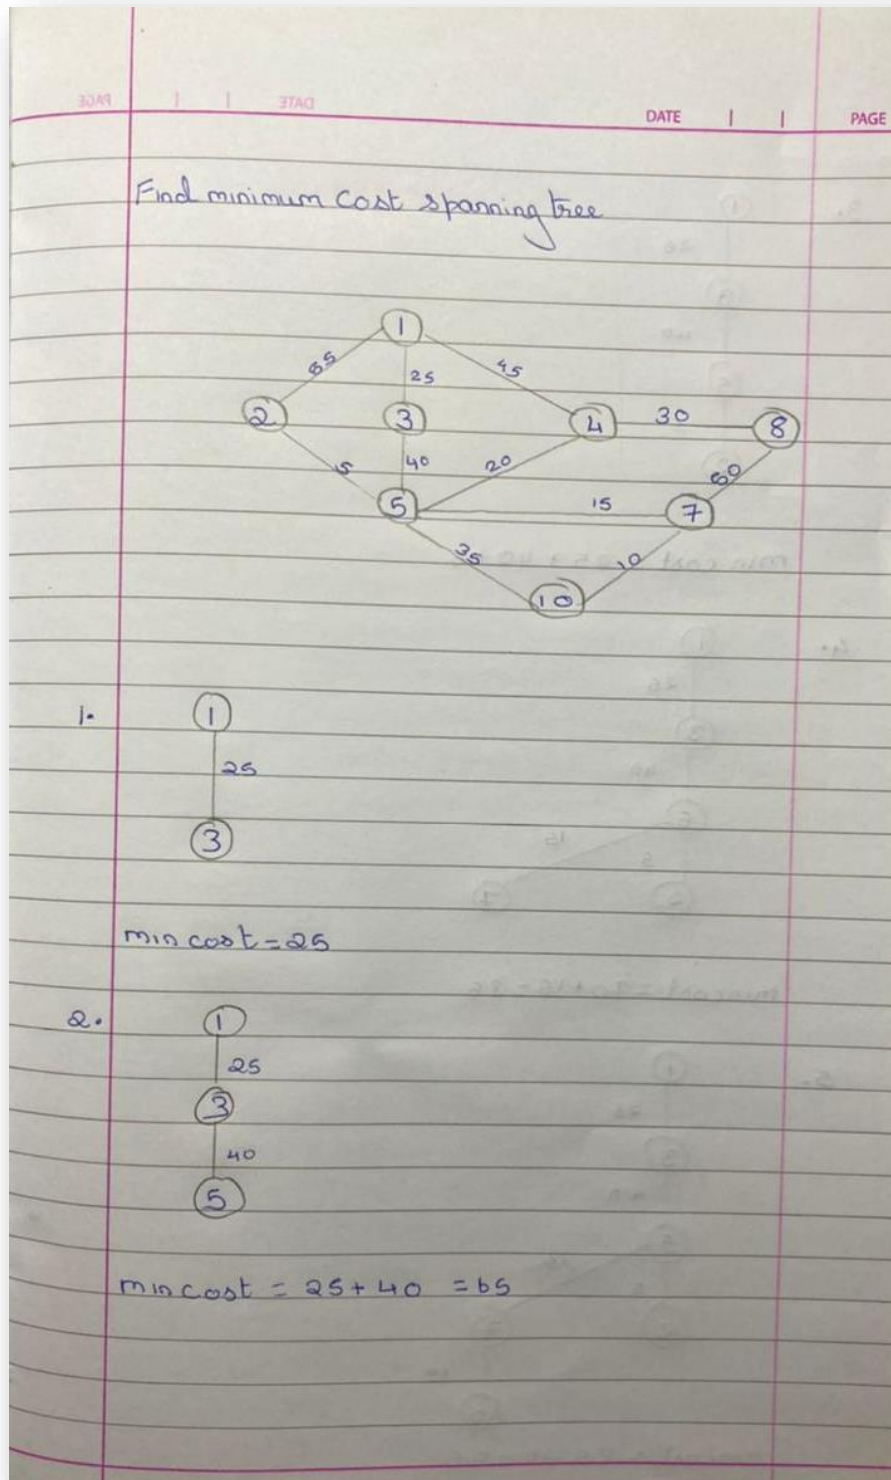 DATE PAGE
Find minimum cost spanning tree
1
45
25
2
3
4
30
8
5
40
20
5
15
7
35
10
10
1.
1
25
3
min cost = 25
2.
1
25
3
40
5
min cost = 25 + 40 = 65